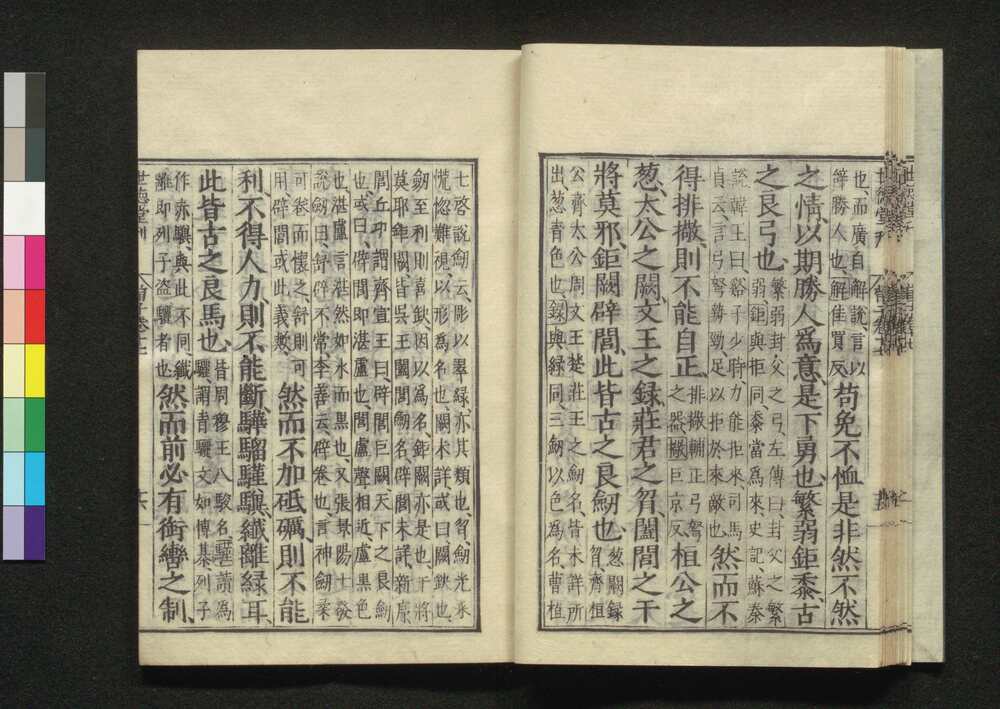 也、而廣自解說、言以
辭勝人也、解佳買反
苟免不恤是非然不然
之情以期勝人爲意、是下勇也、繁弱鉅黍、古
之良弓也、
繁弱封父之弓左傳曰、封父之繁
弱、鉅與拒同、黍當爲來、史記、蘇秦
說韓王曰、谿子少時力能拒來、司馬
貞云、言弓弩勢勁、足以拒於來敵也、
然而不
得排㯳、則不能自正、
排㯳輔正弓弩
之器、㯳巨京反、
桓公之
葱、太公之闕、文王之録、莊君之曶、闔閭之干
將莫邪、鉅闕辟閭、此皆古之良劒也、
葱闕録
曶、齊桓
公齊太公周文王楚莊王之劒名、皆未詳所
出葱青色也、録與緑同、三劒以色爲名、曹植
七啓說劒云、彫以翠緑亦其類也、曶、劒光采
慌惚難視、以形爲名也闕未詳或曰闕缺也、
劒至利則喜缺、因以爲名、鉅闕亦是也、干將
莫耶鉅闕、皆吳王闔閭劒名、辟閭未詳、新序
閭丘卬謂齊宣王曰、辟閭巨闕天下之良劒
也、或曰、辟閭即湛盧也、閭盧聲相近、盧黑色
也、湛盧言湛然如水而黑也、又張景陽七發
說劒曰、舒辟不常、李善云、辟卷也、言神劒柔
可卷而懷之、舒則可
用、辟閭或此義歟、
然而不加砥礪、則不能
利、不得人力、則不能斷、驊騮騹驥纖離緑耳、
此皆古之良馬也、
皆周穆王八駿名、騹讀爲
騏、謂青驪文如博棊列子
作赤驥、與此不同、纖
離即列子盜驪者也
然而前必有銜轡之制、
世德堂刊